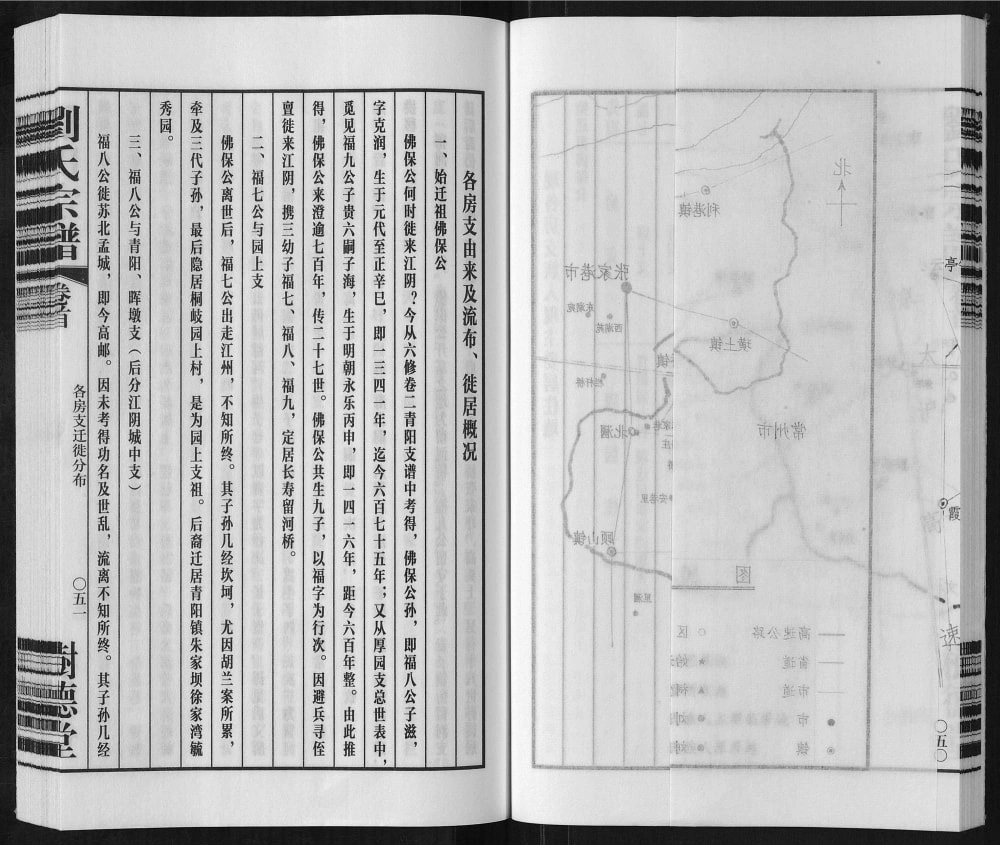 各房支由来及流布、徙居概况
一、始迁祖佛保公
佛保公何时徙来江阴？今从六修卷二青阳支谱中考得，佛保公孙，即福八公子滋，
字克润，生于元代至正辛巳，即一三四一年，迄今六百七十五年；又从厚园支总世表中，
觅见福九公子贵六嗣子海，生于明朝永乐丙申，即一四一六年，距今六百年整。由此推
得，佛保公来澄逾七百年，传二十七世。佛保公共生九子，以福字为行次。因避兵寻侄
亶徙来江阴，携三幼子福七、福八、福九，定居长寿留河桥。
二、福七公与园上支
佛保公离世后，福七公出走江州，不知所终。其子孙几经坎坷，尤因胡兰案所累，
牵及三代子孙，最后隐居桐岐园上村，是为园上支祖。后裔迁居青阳镇朱家坝徐家湾毓
秀园。
三、福八公与青阳、晖墩支（后分江阴城中支）
福八公徙苏北孟城，即今高邮。因未考得功名及世乱，流离不知所终。其子孙几经
劉氏宗譜
卷首
各房支迁徙分布
〇五一
樹德堂
北
利港镇
张家港市
东湖苑
西湖苑
璜土镇
常州市
北漍
顾山镇
图
高速公路
省道
市道
市
镇
区
亭
霞
速
〇五〇